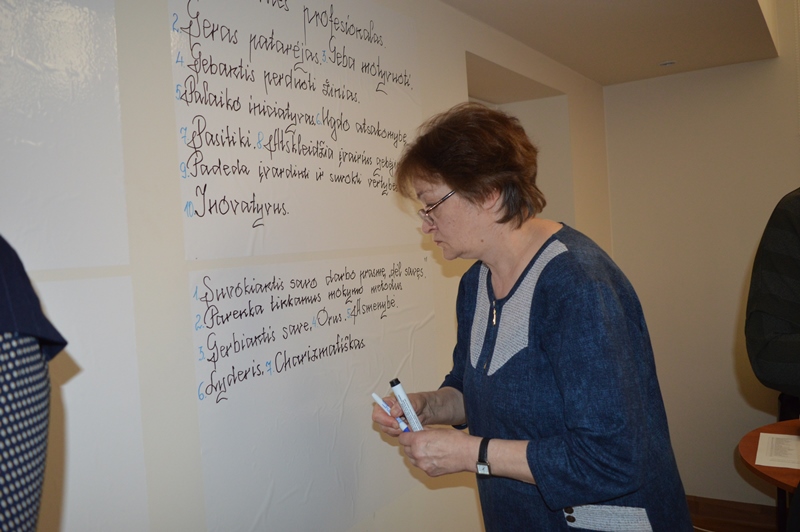 profesionalas.
2. Geras patarėjas. 3. Geba motyvuoti.
4. Gebantis perduoti žinias.
5. Palaiko iniciatyvas. 6. Ugdo atsakomybę
7. Pasitiki. 8. Atskleidžia įvairius
9. Padeda įvardinti ir suvokti
10. Inovatyvus.
1. Suvokiantis savo darbo prasmę „dėl savęs"
2. Parenka tinkamus mokymo metodus
3. Gerbiantis save. 4. Orus. 5. Asmenybė.
6. Lyderis. 7. Charizmatiškas